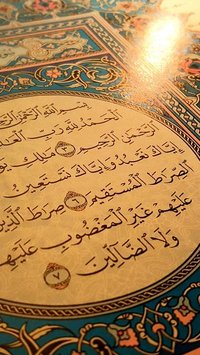 بِسْمِ اللَّهِ الرَّحْمَٰنِ
الْحَمْدُ لِلَّهِ رَبِّ
الرَّحْمَٰنِ الرَّحِيمِ ٣ مَٰلِكِ
إِيَّاكَ نَعْبُدُ وَإِيَّاكَ نَسْتَعِينُ
الصِّرَٰطَ الْمُسْتَقِيمَ ٦ صِرَٰطَ الَّذِينَ
عَلَيْهِمْ غَيْرِ الْمَغْضُوبِ عَلَيْهِمْ
وَلَا الضَّالِّينَ ٧